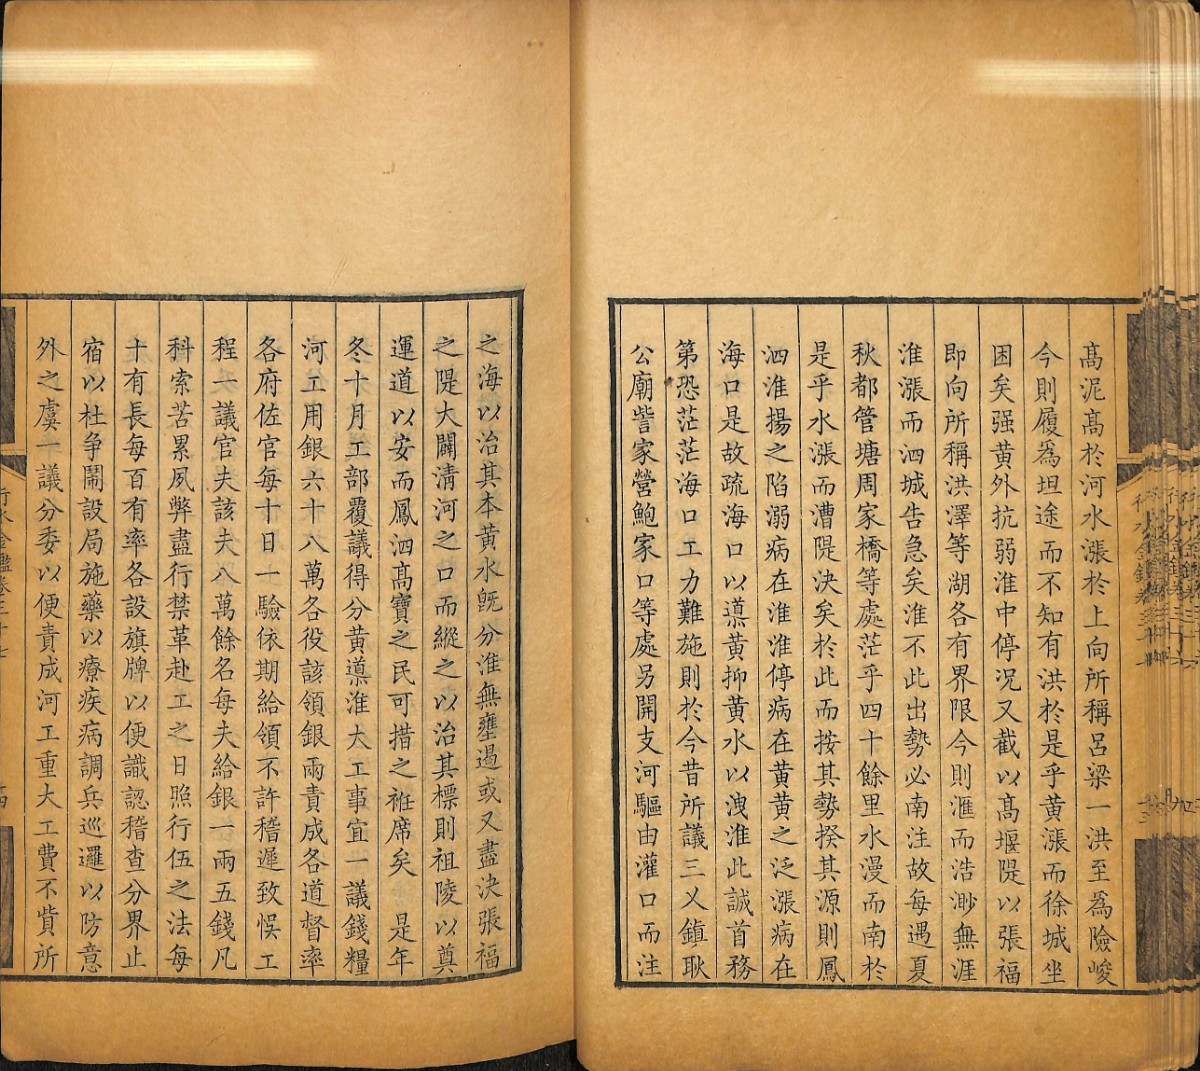 髙泥髙於河水漲於上向所稱呂梁一洪至爲險峻
今則履爲坦途而不知有洪於是乎黄漲而徐城坐
困矣强黄外抗弱淮中停况又截以髙堰隄以張福
即向所稱洪澤等湖各有界限今則滙而浩渺無涯
淮漲而泗城告急矣淮不此出勢必南注故每遇夏
秋都管塘周家橋等處茫乎四十餘里水漫而南於
是乎水漲而漕隄決矣於此而按其勢揆其源則鳳
泗淮揚之陷溺病在淮淮停病在黄黄之泛漲病在
海口是故疏海口以導黄抑黄水以洩淮此誠首務
第恐茫茫海口工力難施則於今昔所議三义鎮耿
公廟訾家營鮑家口等處另開支河驅由灌口而注
之海以治其本黄水旣分淮無壅遏或又盡決張福
之隄大闢淸河之口而縱之以治其標則祖陵以奠
運道以安而鳳泗髙寶之民可措之袵席矣　是年
冬十月工部覆議得分黄導淮大工事宜一議錢糧
河工用銀六十八萬各役該領銀兩責成各道督率
各府佐官每十日一驗依期給領不許稽遲致悞工
程一議官夫該夫八萬餘名每夫給銀一兩五錢凡
科索苦累夙弊盡行禁革赴工之日照行伍之法每
十有長每百有率各設旗牌以便識認稽查分界止
宿以杜爭鬧設局施藥以療疾病調兵巡邏以防意
外之虞一議分委以便責成河工重大工費不貲所
行水金鑑卷三十七